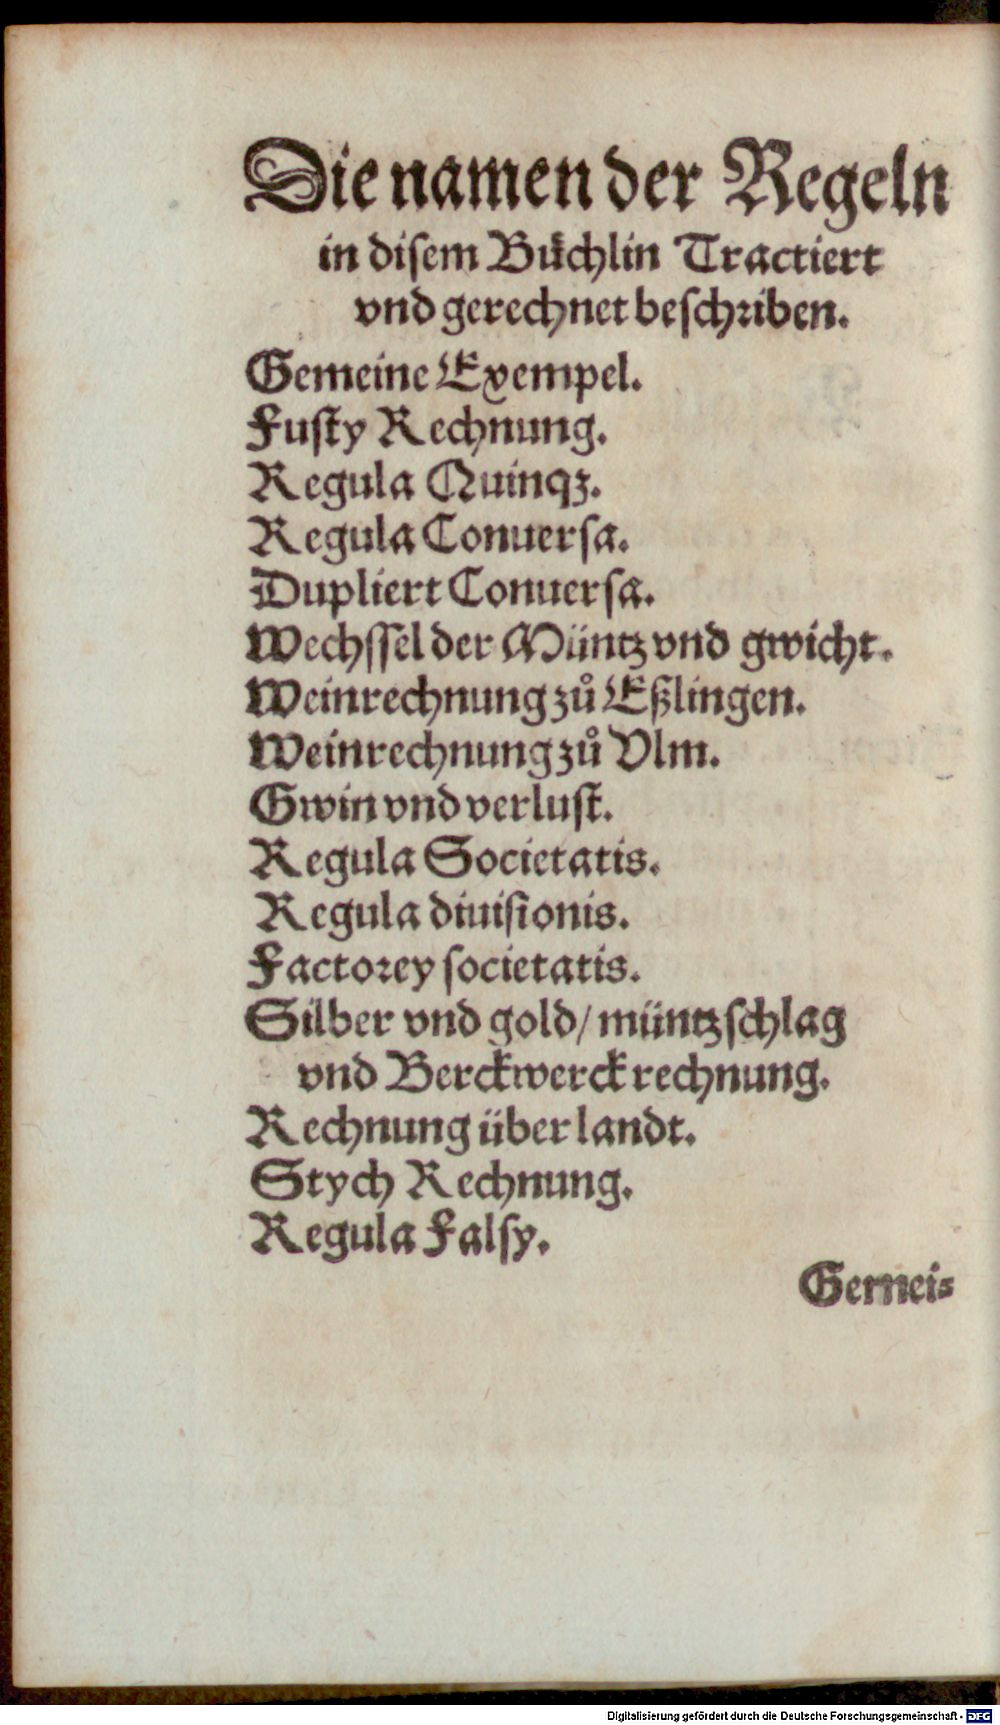 Die namen der Regeln
in disem Bu᷎chlin Tractiert
vnd gerechnet beschriben.
Gemeine Exempel.
Fusty Rechnung.
Regula Quinqꝫ.
Regula Conuersa.
Dupliert Conuersa.
Wechssel der Müntz vnd gwicht.
Weinrechnung zů Eßlingen.
Weinrechnung zů Vlm.
Gwin vnd verlust.
Regula Societatis.
Regula diuisionis.
Factorey societatis.
Silber vnd gold/ müntz schlag
vnd Berckwerck rechnung.
Rechnung über landt.
Stych Rechnung.
Regula Falsy.
Gemei⸗
Digitalisierung gefördert durch die Deutsche Forschungsgemeinschaft - DFG